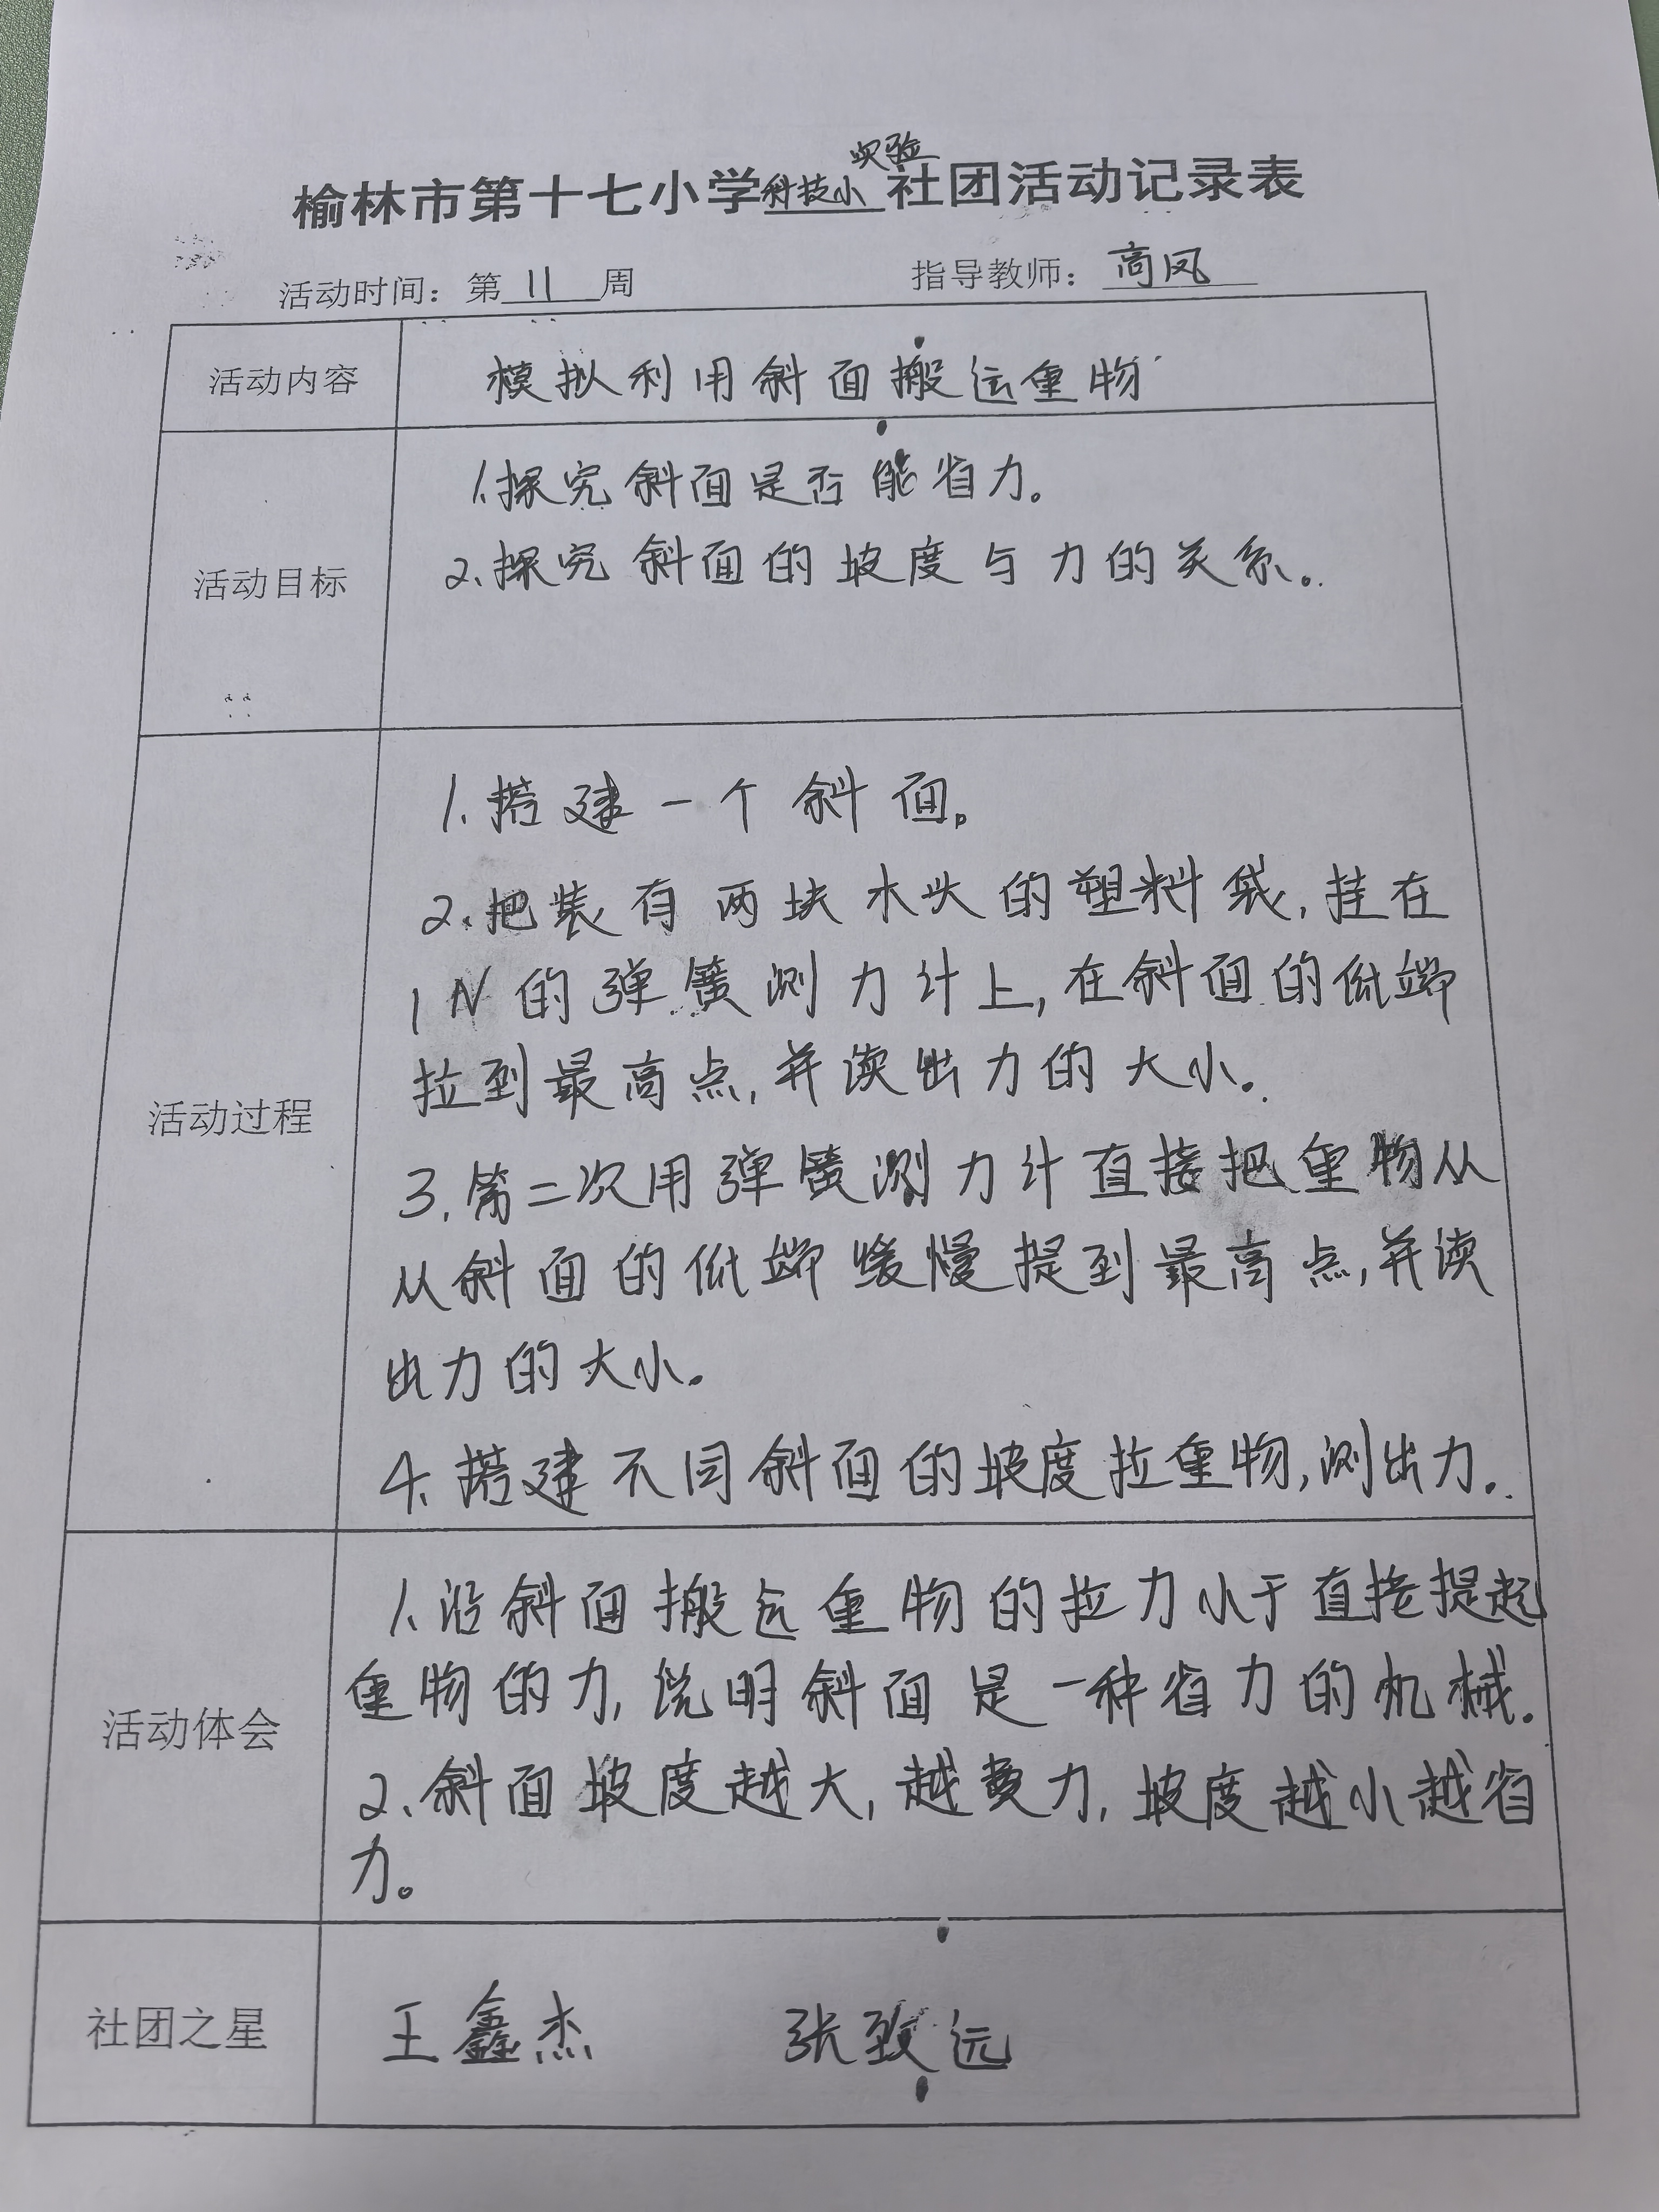 榆林市第十七小学科技小实验社团活动记录表
活动时间：第11周 指导教师：高凤
活动内容 模拟利用斜面搬运重物
活动目标
1.探究斜面是否能省力。
2、探究斜面的坡度与力的关系。
活动过程
1、搭建一个斜面。
2、把装有两块木头的塑料袋，挂在
1N的弹簧测力计上，在斜面的低端
拉到最高点，并读出力的大小。
3、第二次用弹簧测力计直接把重物从
从斜面的低端缓慢提到最高点，并读
出力的大小。
4、搭建不同斜面的坡度拉重物，测出力。
活动体会
1、沿斜面搬运重物的拉力小于直接提起
重物的力，说明斜面是一种省力的机械。
2、斜面坡度越大，越费力，坡度越小越省
力。
社团之星 王鑫杰 张致远